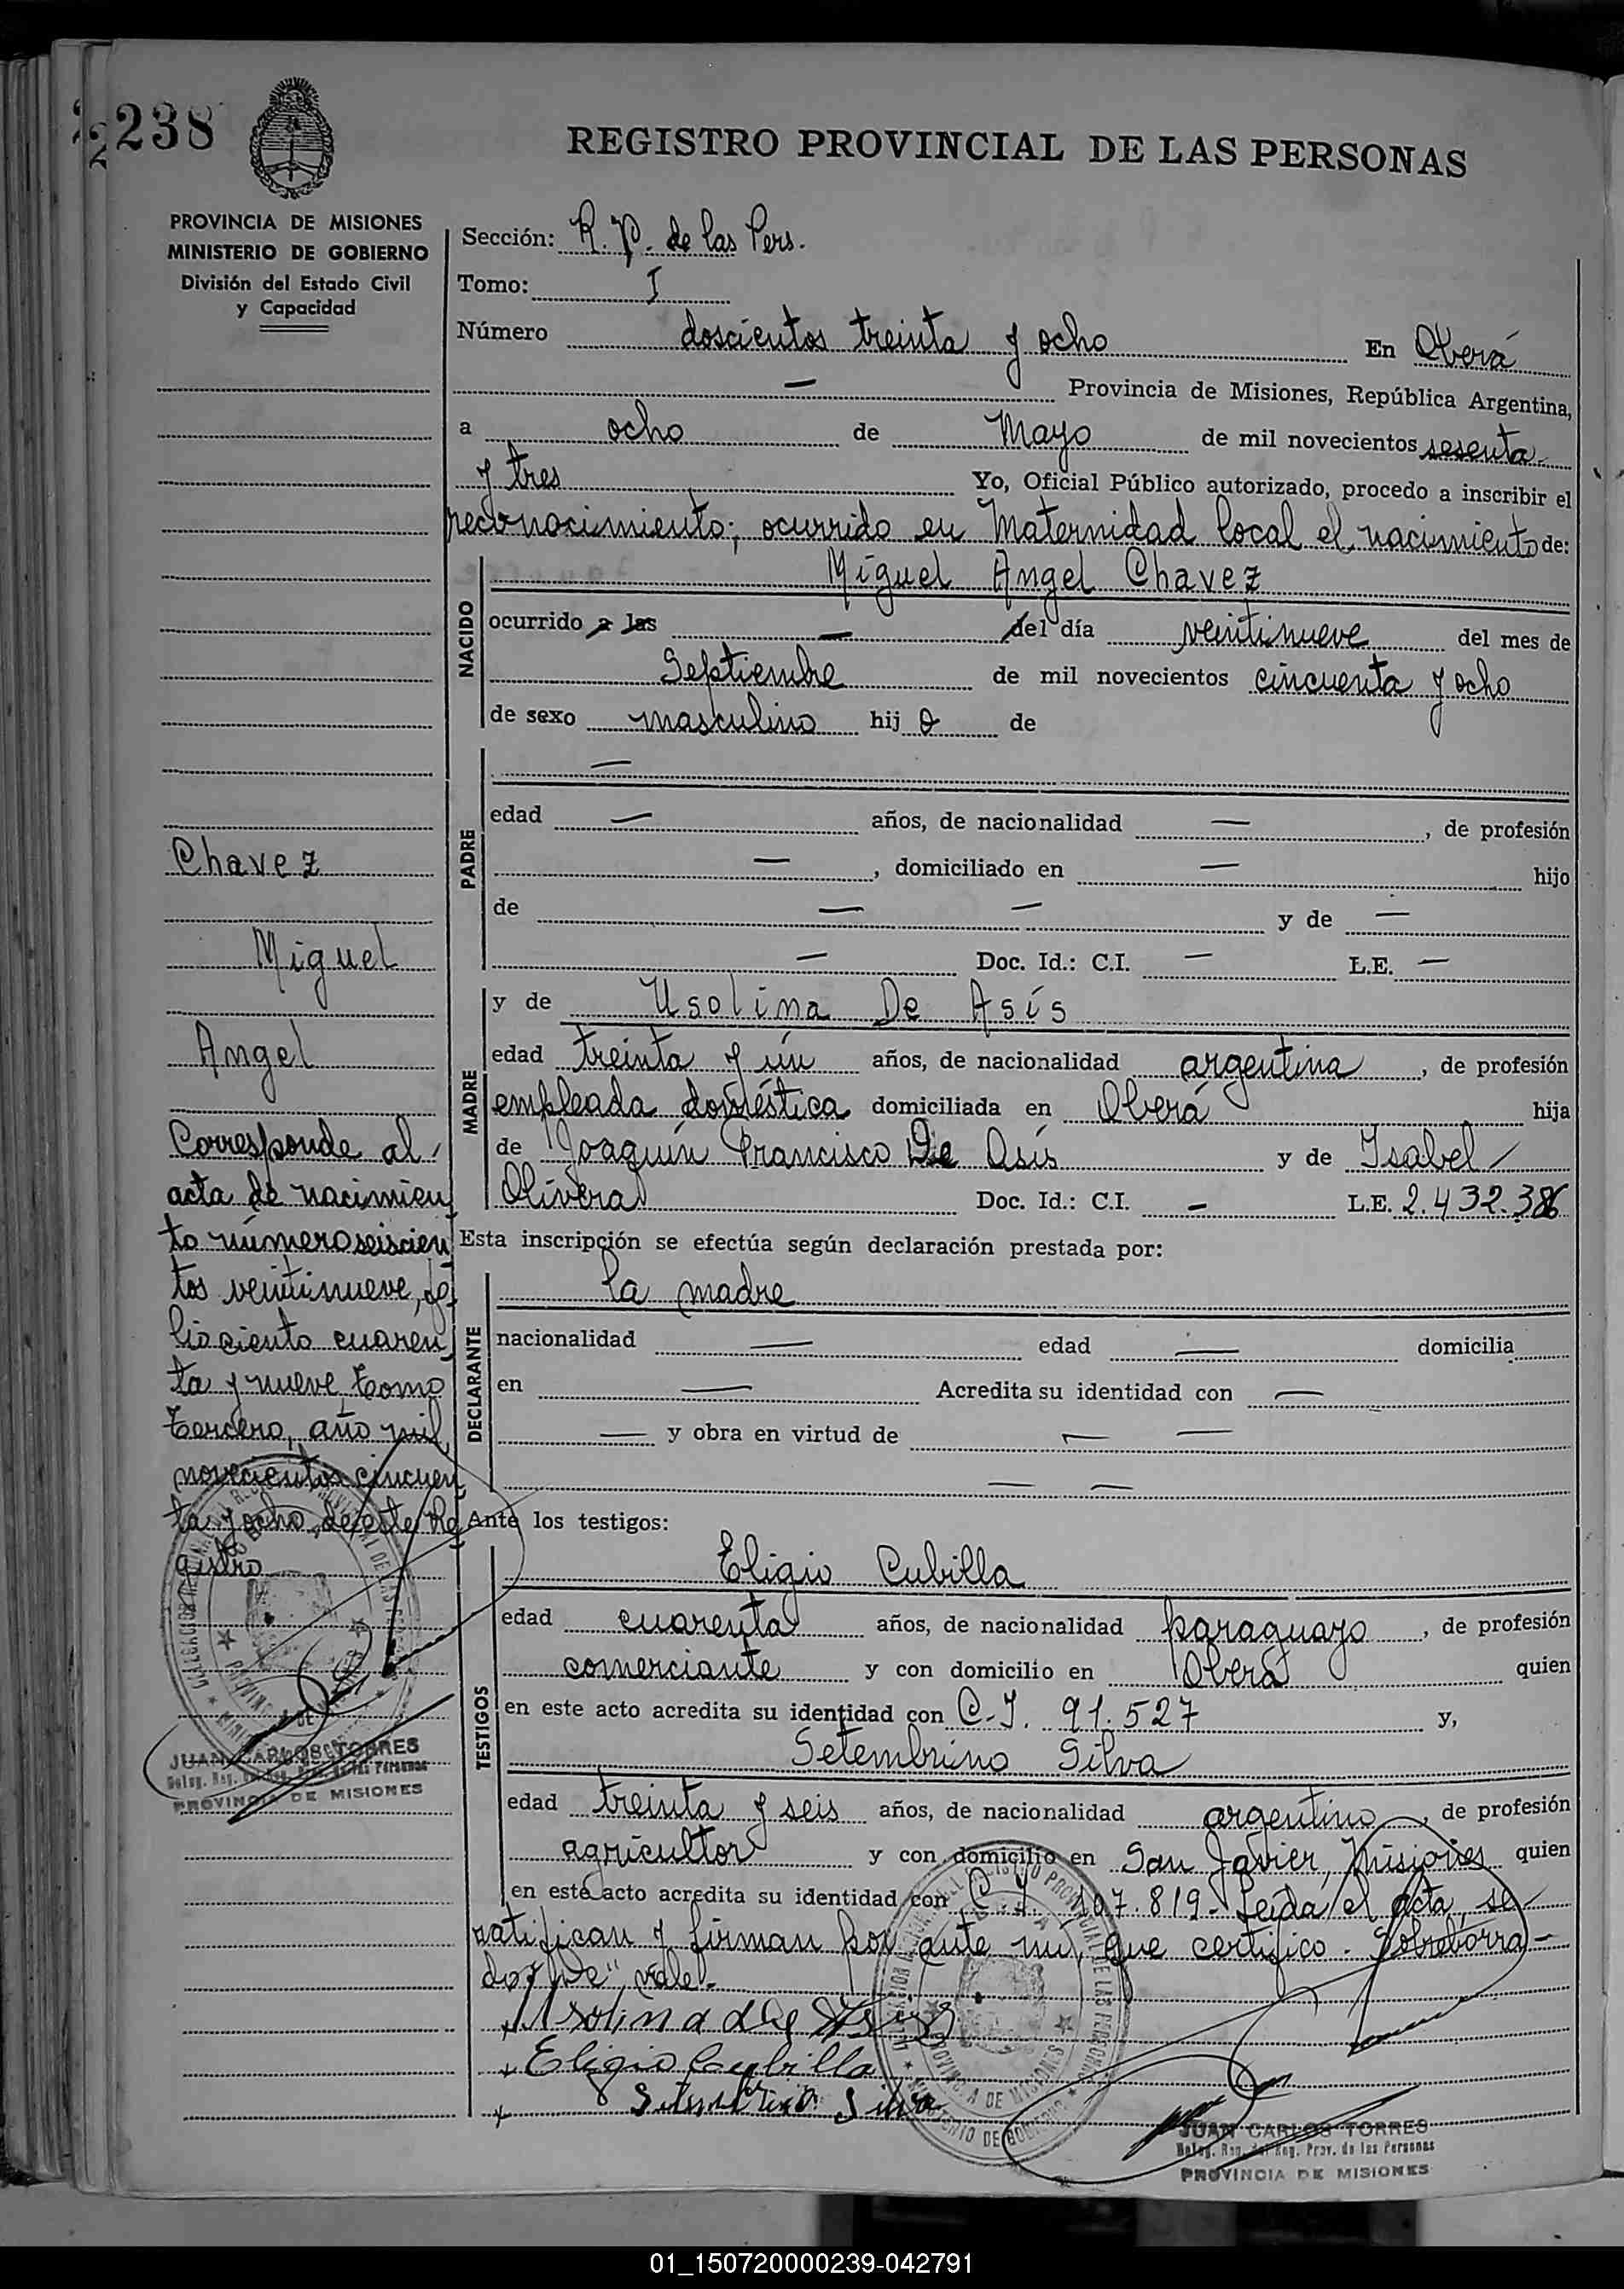 238
REGISTRO PROVINCIAL DE LAS PERSONAS
PROVINCIA DE MISIONES
MINISTERIO DE GOBIERNO
División del Estado Civil
y Capacidad
Sección: R. P. de las Pers.
Tomo: I
Número doscientos treinta y ocho En Oberá
— Provincia de Misiones, República Argentina,
a ocho de Mayo de mil novecientos sesenta
y tres Yo, Oficial Público autorizado, procedo a inscribir el
reconocimiento; ocurrido en Maternidad local el nacimiento de:
NACIDO
Miguel Angel Chavez
ocurrido a las — del día veintinueve del mes de
Septiembre de mil novecientos cincuenta y ocho
de sexo masculino hij o de
PADRE
—
edad — años, de nacionalidad —, de profesión
—, domiciliado en — hijo
de — — y de —
— Doc. Id.: C.I. — L.E. —
MADRE
y de Usolina De Asís
edad treinta y ún años, de nacionalidad argentina, de profesión
empleada doméstica domiciliada en Oberá hija
de Joaquín Francisco De Asís y de Isabel
Olivera Doc. Id.: C.I. — L.E. 2.432.386
Esta inscripción se efectúa según declaración prestada por:
DECLARANTE
la madre
nacionalidad — edad — domicilia
en — Acredita su identidad con —
— y obra en virtud de — —
— —
Ante los testigos:
TESTIGOS
Eligio Cubilla
edad cuarenta años, de nacionalidad paraguayo, de profesión
comerciante y con domicilio en Oberá quien
en este acto acredita su identidad con C.I. 91.527 y,
Setembrino Silva
edad treinta y seis años, de nacionalidad argentino, de profesión
agricultor y con domicilio en San Javier, Misiones quien
en este acto acredita su identidad con C.I. 107.819.- Leída el acta, se
ratifican y firman por ante mí, que certifico. Sobreborra-
do: "De", vale.-
Usolina de Asis
Eligio Cubilla
Setembrino Silva
JUAN CARLOS TORRES
Deleg. Reg. del Reg. Prov. de las Personas
PROVINCIA DE MISIONES
Chavez
Miguel
Angel
Corresponde al
acta de nacimien
to número seiscien
tos veintinueve, fo
lio ciento cuaren
ta y nueve, tomo
tercero, año mil
novecientos cincuen
ta y ocho, de este Re
gistro
JUAN CARLOS TORRES
Deleg. Reg. del Reg. Prov. de las Personas
PROVINCIA DE MISIONES
01_150720000239-042791